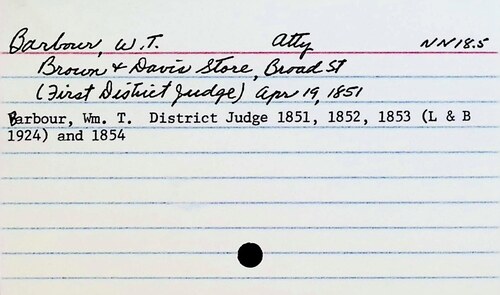 Barbour, W.T. Atty NN18.5
Brown & Davis Store, Broad St
(First District Judge) Apr 19, 1851
Barbour, Wm. T. District Judge 1851, 1852, 1853 (L & B
1924) and 1854